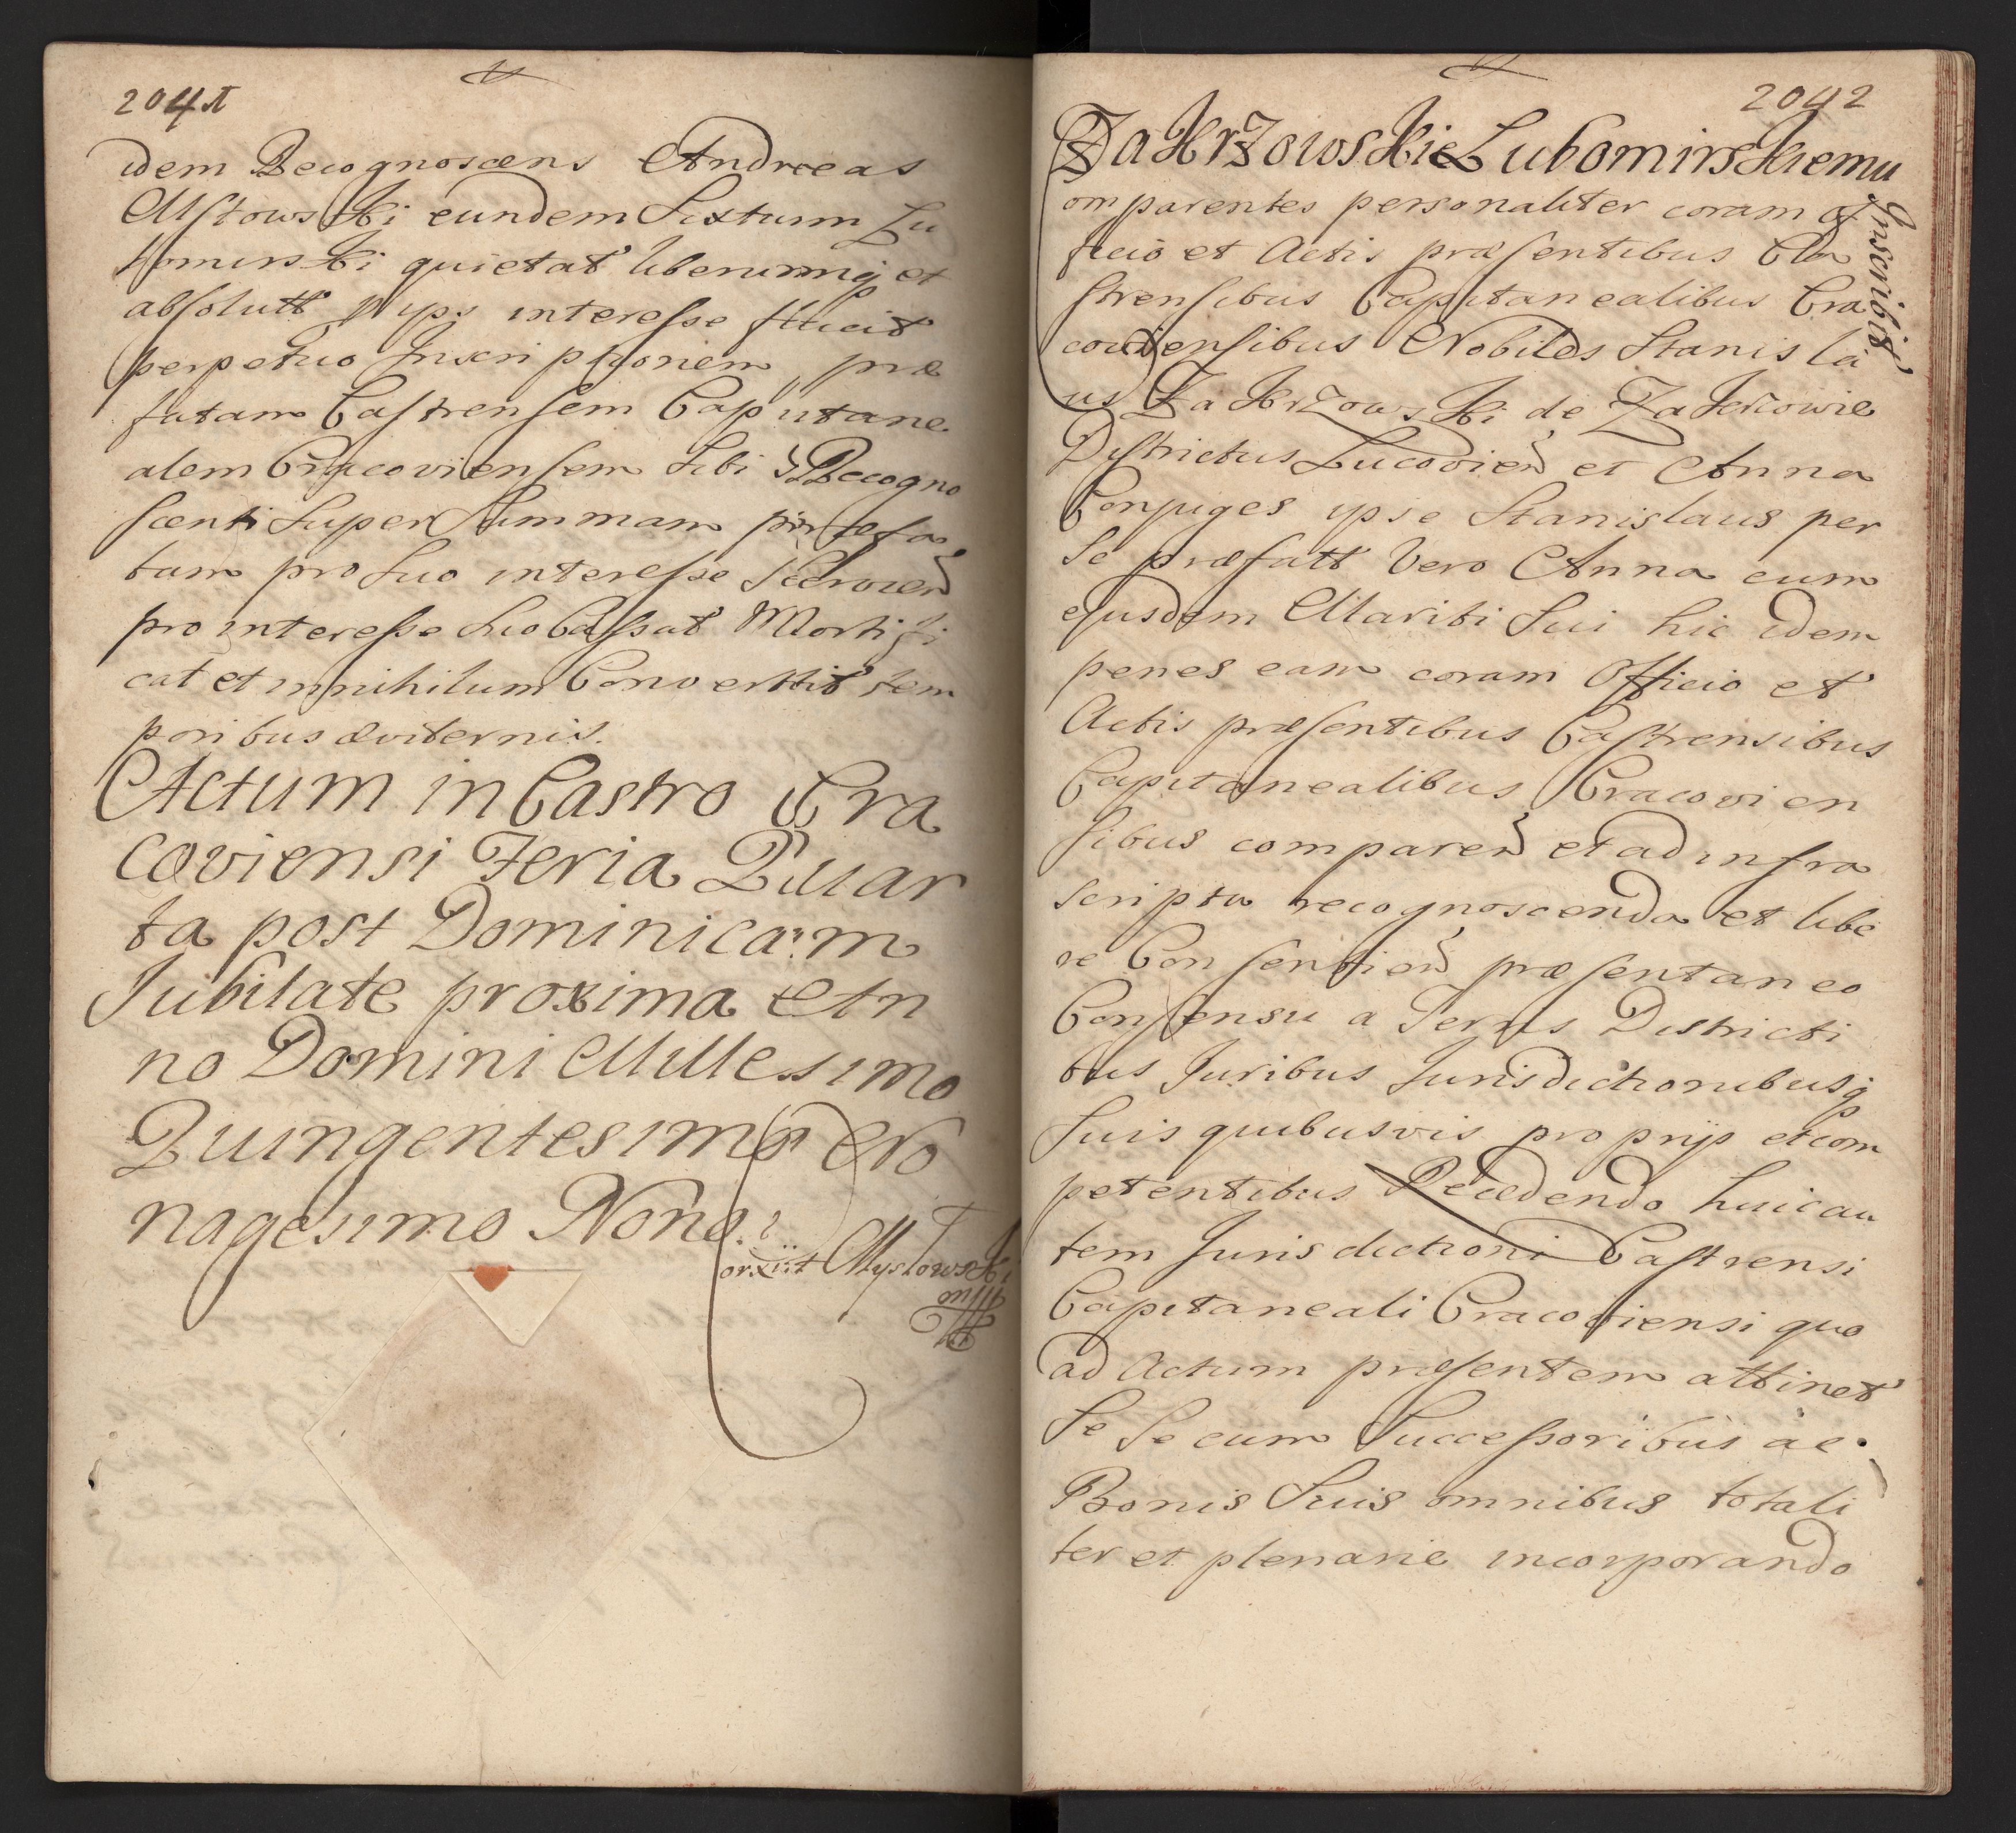 2041
idem Recognoscens Andreas
Mstowski eundem Sixtum Lu
bomirski quietat liberumq et
absolutt
perpetuo Inscriptionem præ
fatam Castrensem Capitane
alem Cracoviensem Sibi Recogno
scenti Super Summam præfa
tam pro Suo interesse Servien
pro interesse Suo Cassat Mortifi
cat et in nihilum Convertit tem
poribus æviternis.
Actum in Castro Cra
coviensi Feria Quar
ta post Dominicam
Jubilate proxima An
no Domini Millesimo
Quingentesimo No
nagesimo Nono.
Mystowski
mpp
2042
ZakrzowskieLubomirskiemu
Inscribit
omparentes personaliter coram of
ficio et Actis præsentibus Ca
strensibus Capitanealibus Cra
coviensibus Nobiles Stanisla
us Zakrzowski de Zakrzowie
Districtus Lucovien et Anna
Conjuges ipse Stanislaus per
Se præfatt Vero Anna cum
ejusdem Mariti Sui hic idem
penes eam coram Officio et
Actis præsentibus Castrensibus
Capitanealibus Cracovien
sibus comparen et ad infra
scripta recognoscenda et libe
re Consentien præsentaneo
Consensu a Terris Districti
bus Juribus Jurisdictionibusq
Suis quibusvis proprijs et com
petentibus Recedendo huic au
tem Jurisdictioni Castrensi
Capitaneali Cracoviensi quo
ad Actum præsentem attinet
Se Se cum Successoribus ac
Bonis Suis omnibus totali
ter et plenarie incorporando